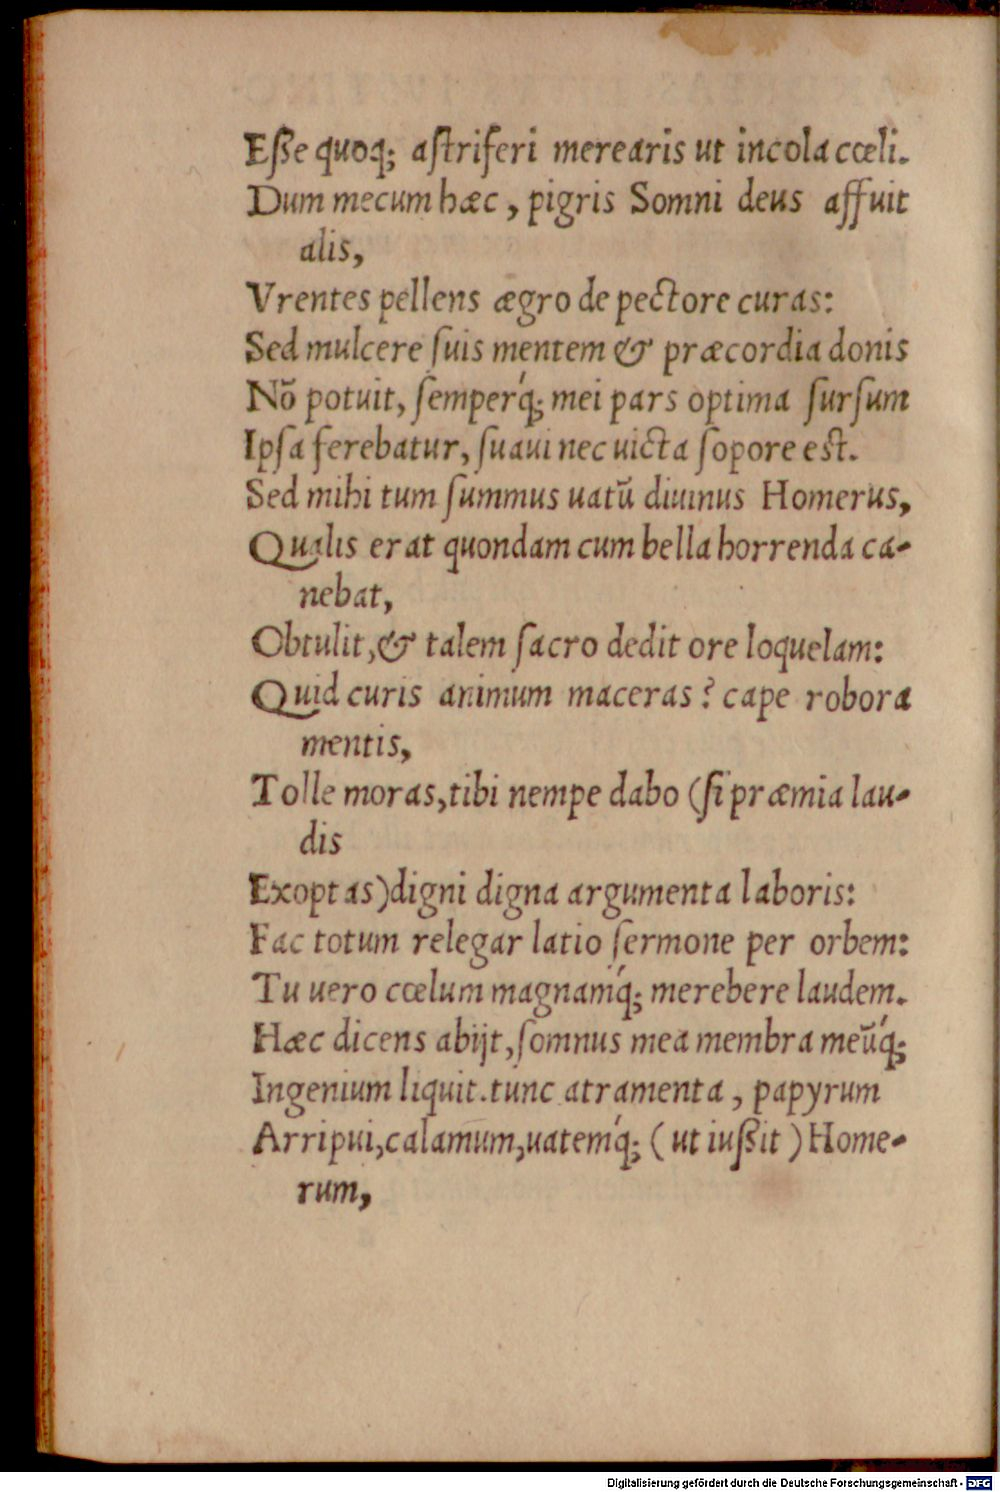 Eſſe quoq; aſtriferi merearis ut incola cœli.
Dum mecum hæc, pigris Somni deus affuit
alis,
Vrentes pellens ægro de pectore curas:
Sed mulcere ſuis mentem & præcordia donis
Nõ potuit, ſemperq́; mei pars optima ſurſum
Ipſa ferebatur, ſuaui nec uicta ſopore eſt.
Sed mihi tum ſummus uatũ diuinus Homerus,
Qualis erat quondam cum bella horrenda ca-
nebat,
Obtulit, & talem ſacro dedit ore loquelam:
Quid curis animum maceras? cape robora
mentis,
Tolle moras, tibi nempe dabo (ſi præmia lau-
dis
Exoptas) digni digna argumenta laboris:
Fac totum relegar latio ſermone per orbem:
Tu uero cœlum magnamq́; merebere laudem.
Hæc dicens abijt, ſomnus mea membra meũq́;
Ingenium liquit. tunc atramenta, papyrum
Arripui, calamum, uatemq́; (ut iuſſit) Home-
rum,
Digitalisierung gefördert durch die Deutsche Forschungsgemeinschaft - DFG